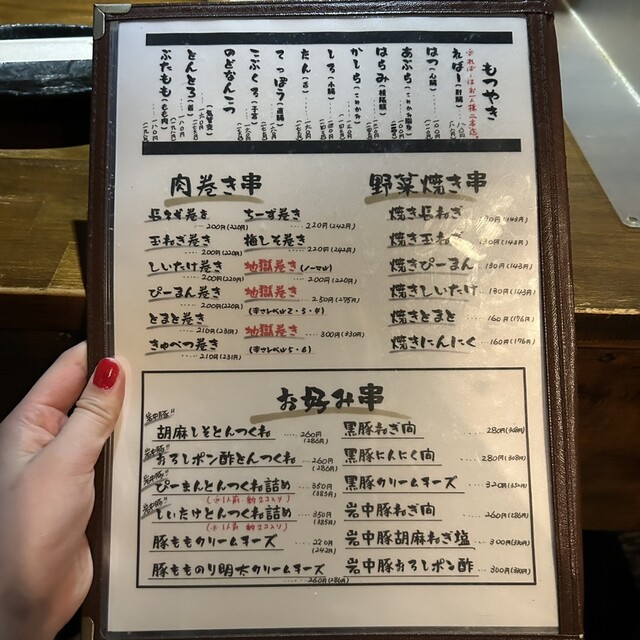 もつやき
※ればーはお一人様二本迄。
ればー(肝臓)
はつ(心臓)
あぶら
はらみ(横隔膜)
かしら(こめかみ)
しろ(小腸)
たん(舌)
てっぽう(直腸)
こぶくろ(子宮)
のどなんこつ
とんとろ(首)
ぶたもも(もも肉)
肉巻き串
長ねぎ巻き
200円(220円)
玉ねぎ巻き
200円(220円)
しいたけ巻き
200円(220円)
ぴーまん巻き
200円(220円)
とまと巻き
210円(231円)
きゅべつ巻き
210円(231円)
ちーず巻き
220円(242円)
梅しそ巻き
220円(242円)
地獄巻き(ノーマル)
200円(220円)
地獄巻き
250円(275円)
(辛さレベル2・3・4)
地獄巻き
300円(330円)
(辛さレベル5・6)
野菜焼き串
焼き長ねぎ 130円(143円)
焼き玉ねぎ 130円(143円)
焼きぴーまん 130円(143円)
焼きしいたけ 130円(143円)
焼きとまと 160円(176円)
焼きにんにく 160円(176円)
お好み串
岩中豚!!
胡麻しそとんつくね 260円(286円)
岩中豚!!
おろしポン酢とんつくね 260円(286円)
岩中豚!!
ぴーまんとんつくね詰め 350円(385円)
(※1人前 約2コ入り)
岩中豚!!
しいたけとんつくね詰め 350円(385円)
(※1人前 約2コ入り)
豚ももクリームチーズ 220円(242円)
豚もものり明太クリームチーズ
260円(286円)
黒豚ねぎ間 280円(308円)
黒豚にんにく間 280円(308円)
黒豚クリームチーズ 320円(352円)
岩中豚ねぎ間 260円(286円)
岩中豚胡麻ねぎ塩 300円(330円)
岩中豚おろしポン酢 300円(330円)